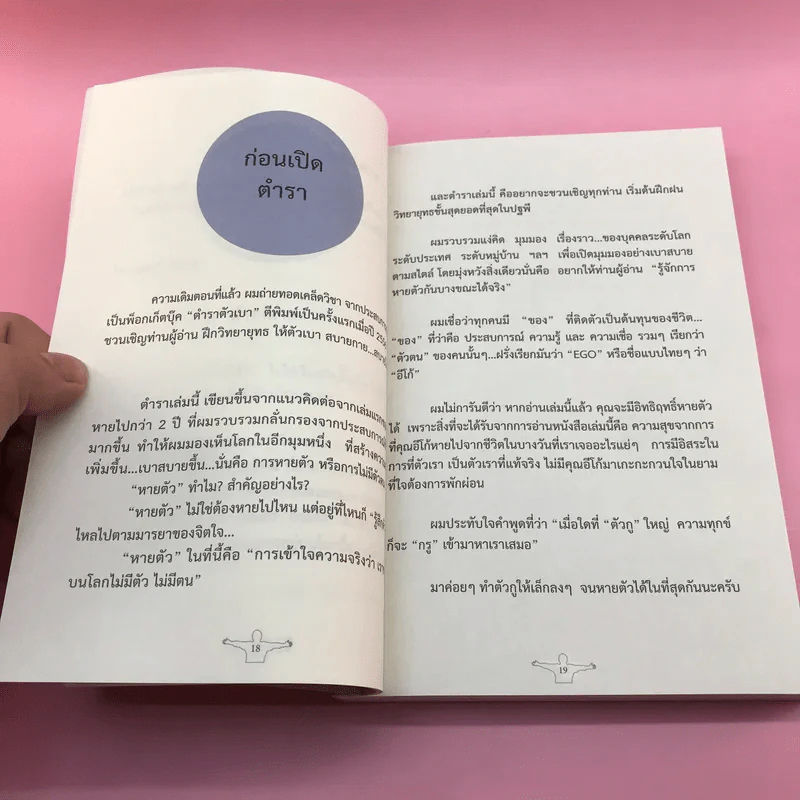 ก่อนเปิด
ตำรา
ความเดิมตอนที่แล้ว ผมถ่ายทอดเคล็ดวิชา
เป็นพ็อกเก็ตบุ๊ค “ตำราตัวเบา” ตีพิมพ์เป็นครั้งแรกเมื่อปี
ชวนเชิญท่านผู้อ่าน ฝึกวิทยายุทธ ให้ตัวเบา สบายกาย...
ตำราเล่มนี้ เขียนขึ้นจากแนวคิดต่อจากเล่มแรก
หายไปกว่า 2 ปี ที่ผมรวบรวมกลั่นกรองจากประสบการณ์
มากขึ้น ทำให้ผมมองเห็นโลกในอีกมุมหนึ่ง ที่สร้าง
เพิ่มขึ้น...เบาสบายขึ้น...นั่นคือ การหายตัว หรือการไม่มีตัว
“หายตัว” ทำไม? สำคัญอย่างไร?
“หายตัว” ไม่ใช่ต้องหายไปไหน แต่อยู่ที่ไหนก็
ไหลไปตามมารยาของจิตใจ...
“หายตัว” ในที่นี้คือ “การเข้าใจความจริงว่า
บนโลกไม่มีตัว ไม่มีตน”
18
และตำราเล่มนี้ คืออยากจะชวนเชิญทุกท่าน เริ่มต้นฝึกฝน
วิทยายุทธขั้นสุดยอดที่สุดในปฐพี
ผมรวบรวมแง่คิด มุมมอง เรื่องราว...ของบุคคลระดับโลก
ระดับประเทศ ระดับหมู่บ้าน ฯลฯ เพื่อเปิดมุมมองอย่างเบาสบาย
ตามสไตล์ โดยมุ่งหวังสิ่งเดียวนั่นคือ อยากให้ท่านผู้อ่าน “รู้จักการ
หายตัวกันบางขณะได้จริง”
ผมเชื่อว่าทุกคนมี “ของ” ที่ติดตัวเป็นต้นทุนของชีวิต...
“ของ” ที่ว่าคือ ประสบการณ์ ความรู้ และ ความเชื่อ รวมๆ เรียกว่า
“ตัวตน” ของคนนั้นๆ...ฝรั่งเรียกมันว่า “EGO” หรือชื่อแบบไทยๆ ว่า
“อีโก้”
ผมไม่การันตีว่า หากอ่านเล่มนี้แล้ว คุณจะมีอิทธิฤทธิ์หายตัว
ได้ เพราะสิ่งที่จะได้รับจากการอ่านหนังสือเล่มนี้คือ ความสุขจากการ
ที่คุณอีโก้หายไปจากชีวิตในบางวันที่เราเจออะไรแย่ๆ การมีอิสระใน
การที่ตัวเรา เป็นตัวเราที่แท้จริง ไม่มีคุณอีโก้มาเกะกะกวนใจในยาม
ที่ใจต้องการพักผ่อน
ผมประทับใจคำพูดที่ว่า “เมื่อใดที่ “ตัวกู” ใหญ่ ความทุกข์
ก็จะ “กรู” เข้ามาหาเราเสมอ”
มาค่อยๆ ทำตัวกูให้เล็กลงๆ จนหายตัวได้ในที่สุดกันนะครับ
19